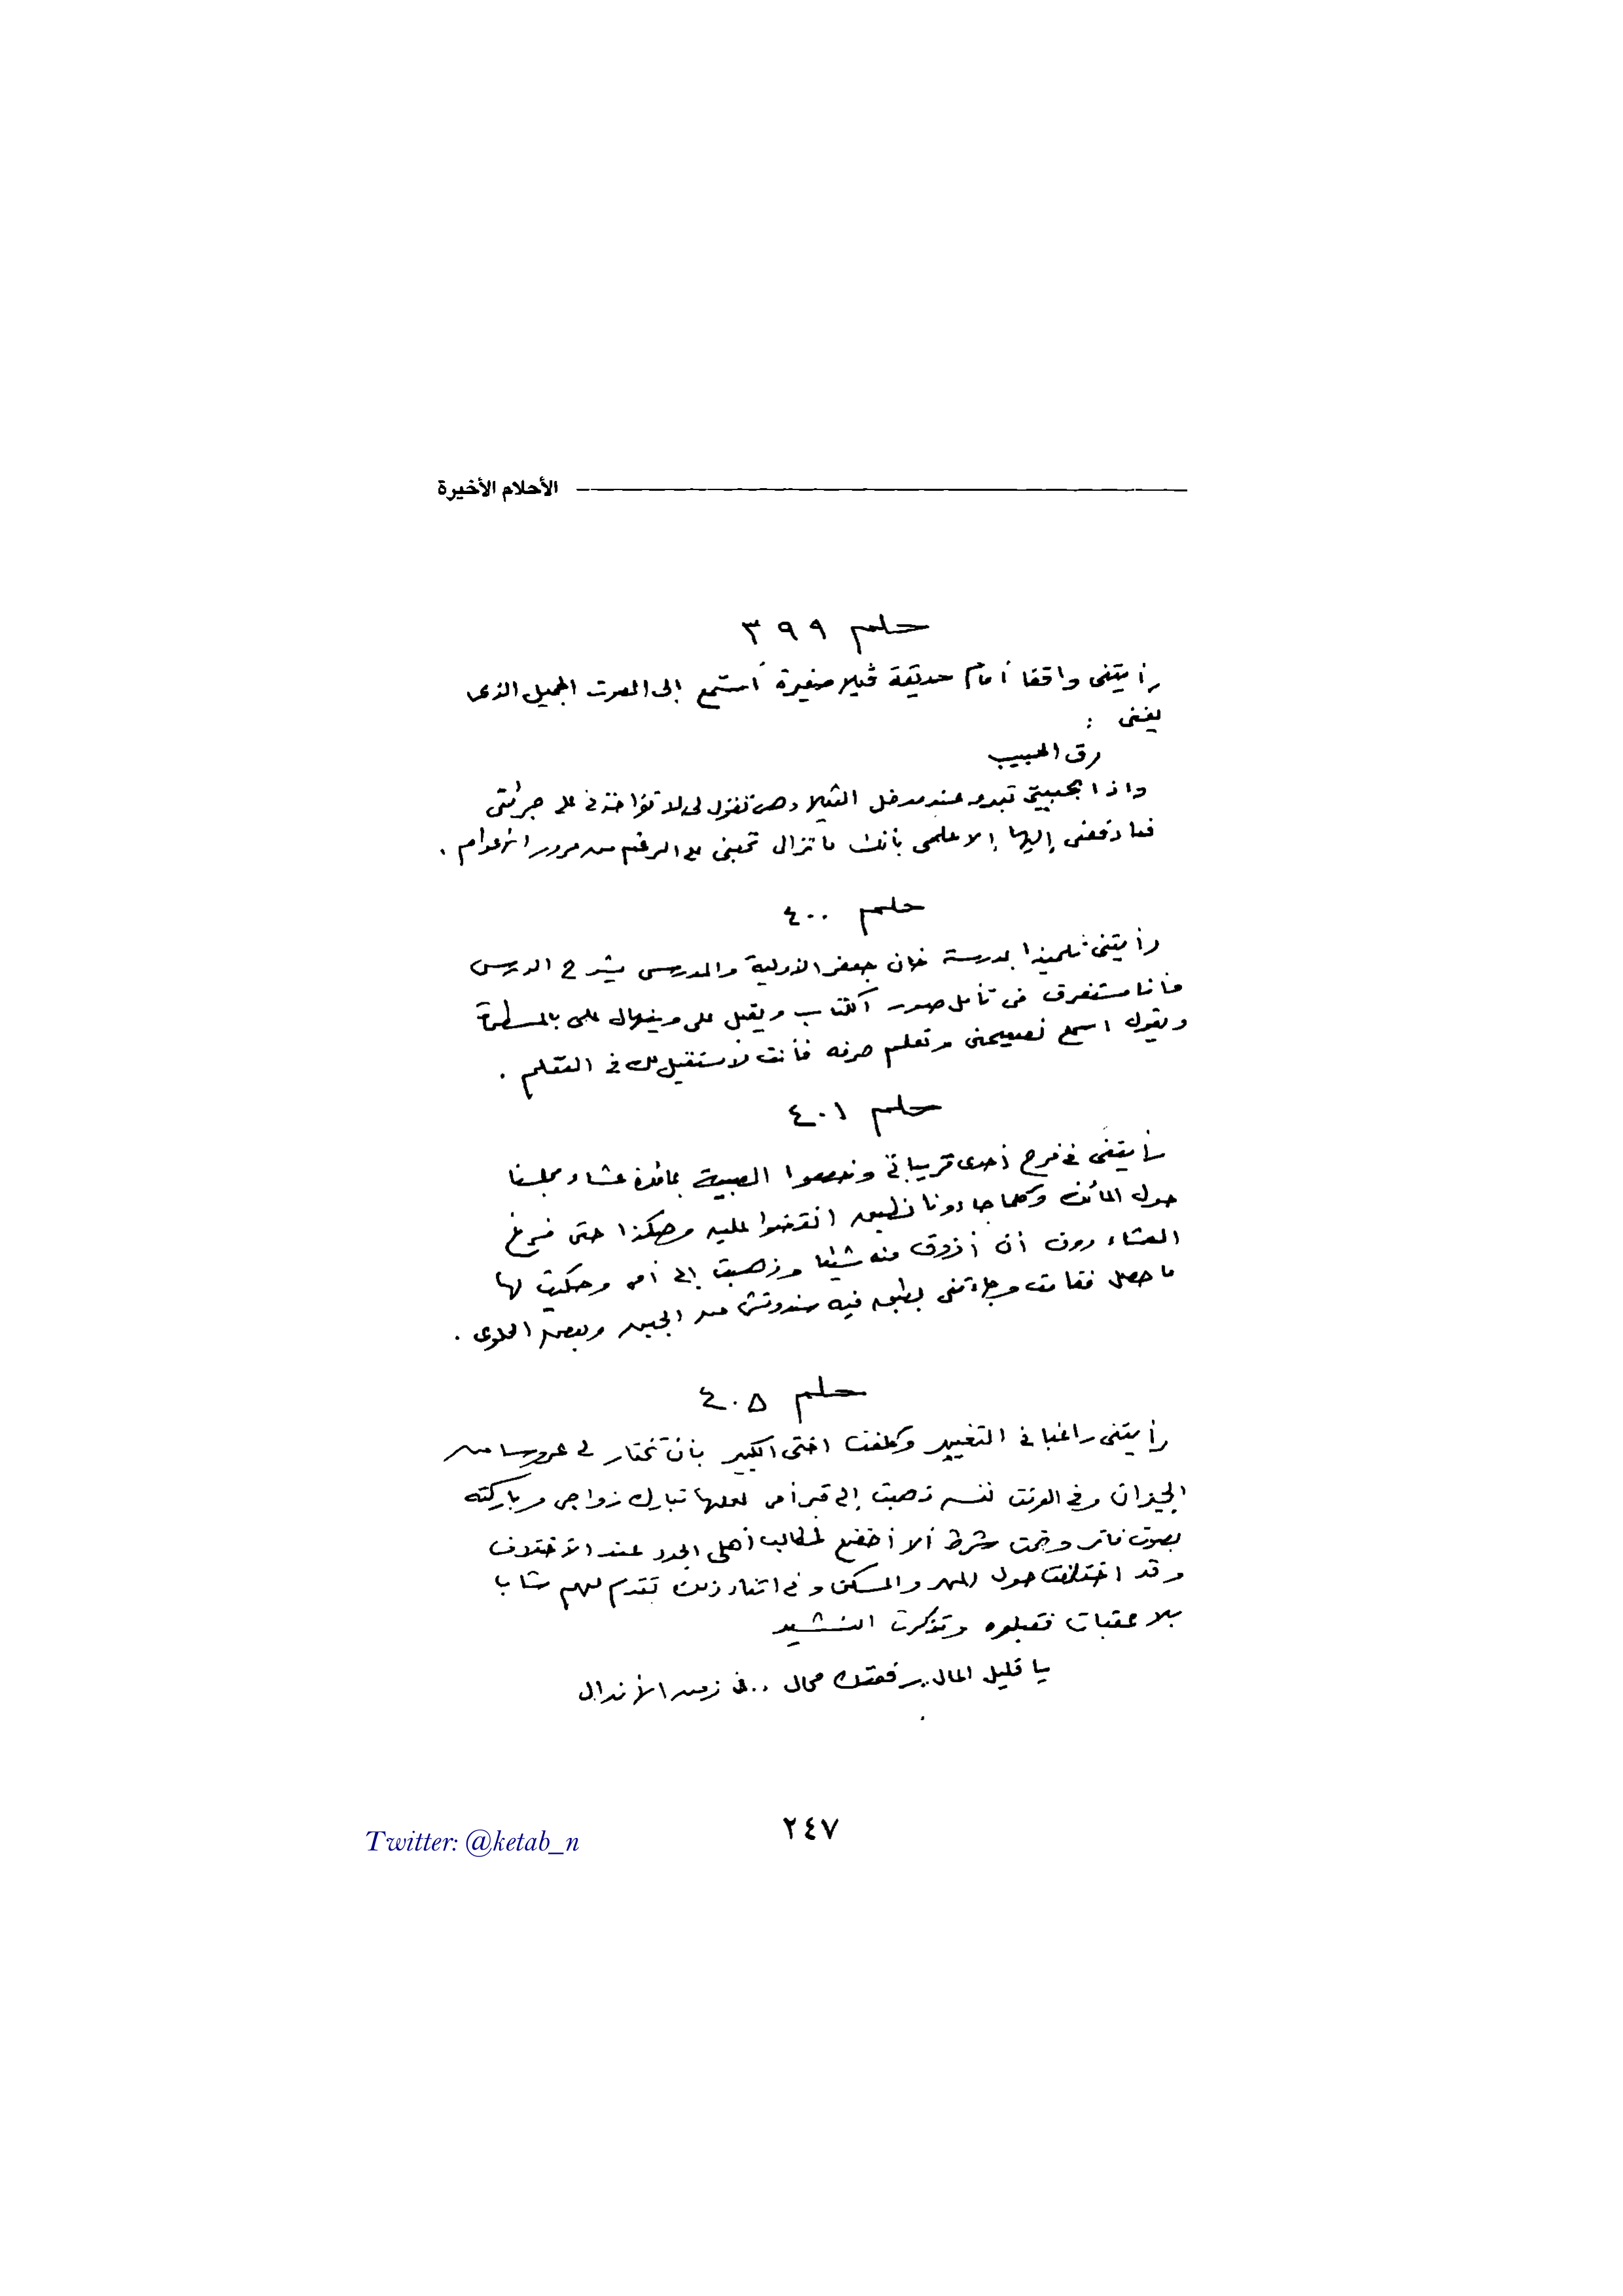 الأحلام الأخيرة
حلم ٣٩٩
رأيتنى واقفا أمام حديقة ڤيلا صغيرة أستمع إلى الصوت الجميل الذى
يغنى :
رق الحبيب
واذا بحبيبتى تبدو عند مدخل الڤيلا وهى تقول لى لا تؤاخذنى على جرأتى
فما دفعنى إليها إلا علمى بأنك ما تزال تحبنى على الرغم من مرور الأعوام .
حلم ٤٠٠
رأيتنى تلميذا بمدرسة خان جعفر الأولية والمدرس يشرح الدرس
وأنا مستغرق فى تأمل صور الكتاب ويقبل على وينهال على بالمسطرة
ويقول اسمع نصيحتى وتعلم حرفة فأنت لا مستقبل لك فى التعلم .
حلم ٤٠١
رأيتنى فى فرح أحدى قريباتى وخصصوا الصبية بمائدة عشاء ومجلسنا
حول المائدة وكلما جاءونا بطبق انقضوا عليه وهكذا حتى فرغ
العشاء دون أن أذوق منه شيئا وذهبت إلى أمى وحكيت لها
ما حصل فقامت وجاءتنى بطبق فيه سندوتش من الجبن وبعض الحلوى .
حلم ٤٠٥
رأيتنى راغبا فى التغيير وكلفت اختى الكبير بأن تختار لى عروسا من
الجيران وفى الوقت نفسه ذهبت إلى قبر أمى لعلها تبارك زواجى وباركته
بصوت فاتر وتحت شرط ألا أخضع لمطالب أهلى الجدد عند الأختلاف
وقد اختلفت حول المهر والمسكن وفى اثناء ذلك تقدم لهم شاب
بلا عقبات فقبلوه وتذكرت النشيد
يا قليل المال .. رفعتك محال .. فى زمن الأندال
٢٤٧
Twitter: @ketab_n